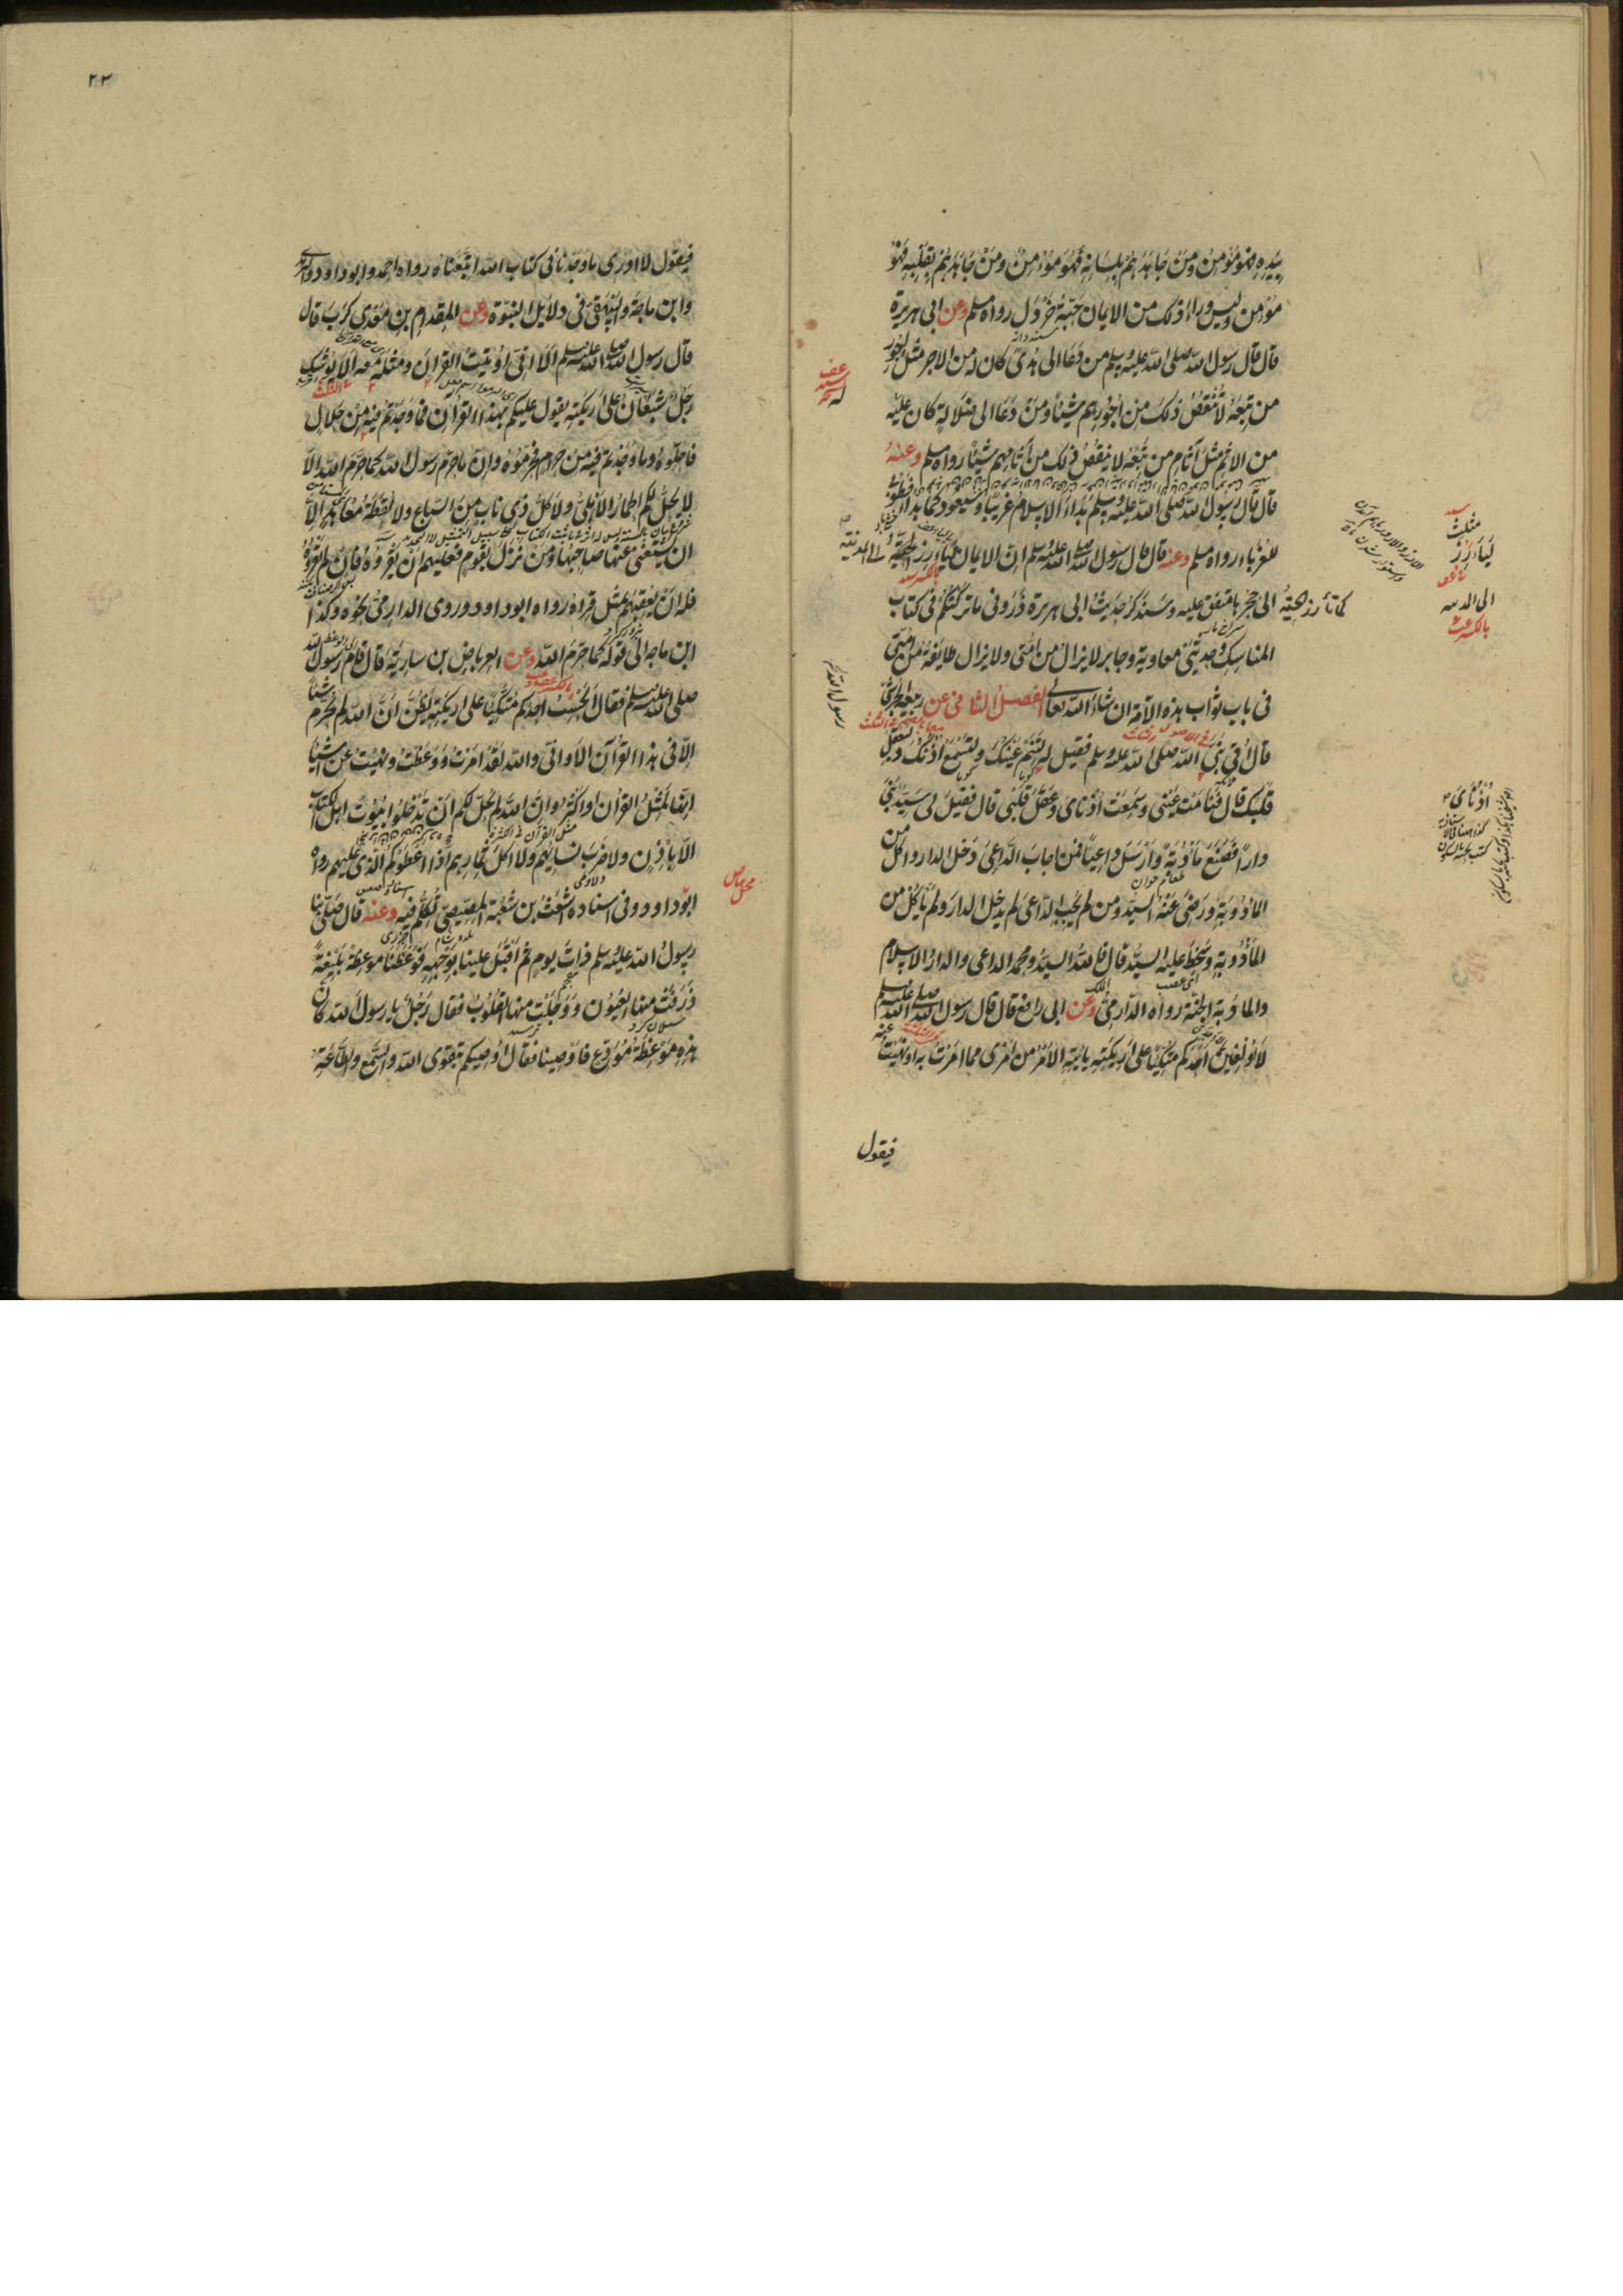 بيده فهو مؤمن ومن جاهدهم بلسانه فهو مؤمن ومن جاهدهم بقلبه فهو
مؤمن وليس وراء ذلك من الايمان حبة خردل رواه مسلم وعن ابى هريرة
قال قال رسول الله صلى الله عليه وسلم من دعا الى هدى كان له من الاجر مثل اجور
من تبعه لا ينقص ذلك من اجورهم شيئا ومن دعا الى ضلالة كان عليه
من الاثم مثل آثام من تبعه لا ينقص ذلك من آثامهم شيئا رواه مسلم وعنه
قال قال رسول الله صلى الله عليه وسلم بداء الاسلام غريبا وسيعود كما بدا فطوبى
للغرباء رواه مسلم وعنه قال قال رسول الله صلى الله عليه وسلم ان الايمان ليارز الى المدينة
كما تأرز الحية الى جحرها متفق عليه وسنذكر حديث ابى هريرة ذرونى ما تركتكم فى كتاب
المناسك وحديثى معاوية وجابر لا يزال من امتى ولا يزال طايفة من امتى
فى باب ثواب هذه الامة ان شاء الله تعالى الفصل الثانى عن ربيعة الجرشى
قال اتى نبى الله صلى الله عليه وسلم فقيل له لتنم عينك ولتسمع اذنك وليعقل
قلبك قال فنامت عينى وسمعت اذناى وعقل قلبى قال فقيل لى سيد بنى
دارا فصنع مأدبة وارسل داعيا فمن اجاب الداعى دخل الدار واكل من
المأدوبة ورضى عنه السيد ومن لم يجب الداعى لم يدخل الدار ولم يأكل من
المأدوبة وسخط عليه السيد قال فالله السيد ومحمد الداعى والدار الاسلام
والمادوبة الجنة رواه الدارمى وعن ابى رافع قال قال رسول الله صلى الله عليه وسلم
لا الفين احدكم متكئا على اريكته ياتيه الامر من امرى مما امرت به او نهيت عنه
فيقول
اذناى
٢٣
فيقول لا ادرى ما وجدنا فى كتاب الله اتبعناه رواه احمد وابو داود والترمذى
وابن ماجة والبيهقى فى دلايل النبوة وعن المقدام بن معدى كرب قال
قال رسول الله صلى الله عليه وسلم الا انى اوتيت القرآن ومثله معه الا يوشك
رجل شبعان على اريكته يقول عليكم بهذا القرآن فما وجدتم فيه من حلال
فاحلوه وما وجدتم فيه من حرام فحرموه وان ما حرم رسول الله كما حرم الله الا
لا يحل لكم الحمار الاهلى ولا كل ذى ناب من السباع ولا لقطة معاهد الا
ان يستغنى عنها صاحبها ومن نزل بقوم فعليهم ان يقروه فان لم يقروه
فله ان يعقبهم بمثل قراه رواه ابو داود وروى الدارمى نحوه وكذا
ابن ماجه الى قوله كما حرم الله وعن العرباض بن سارية قال قام رسول الله
صلى الله عليه وسلم فقال ايحسب احدكم متكئا على اريكته يظن ان الله لم يحرم شيئا
الا فى هذا القرآن الا وانى والله لقد امرت ووعظت ونهيت عن اشياء
انها لمثل القرآن او اكثر وان الله لم يحل لكم ان تدخلوا بيوت اهل الكتاب
الا باذن ولا ضرب نسائهم ولا اكل ثمارهم اذا اعطوكم الذى عليهم رواه
ابو داود وفى اسناده اشعث بن شعبة المصيصى تكلم فيه وعنه قال صلى بنا
رسول الله عليه وسلم ذات يوم ثم اقبل علينا بوجهه فوعظنا موعظة بليغة
ذرفت منها العيون ووجلت منها القلوب فقال رجل يا رسول الله كان
هذه موعظة مودع فاوصينا فقال اوصيكم بتقوى الله والسمع والطاعة